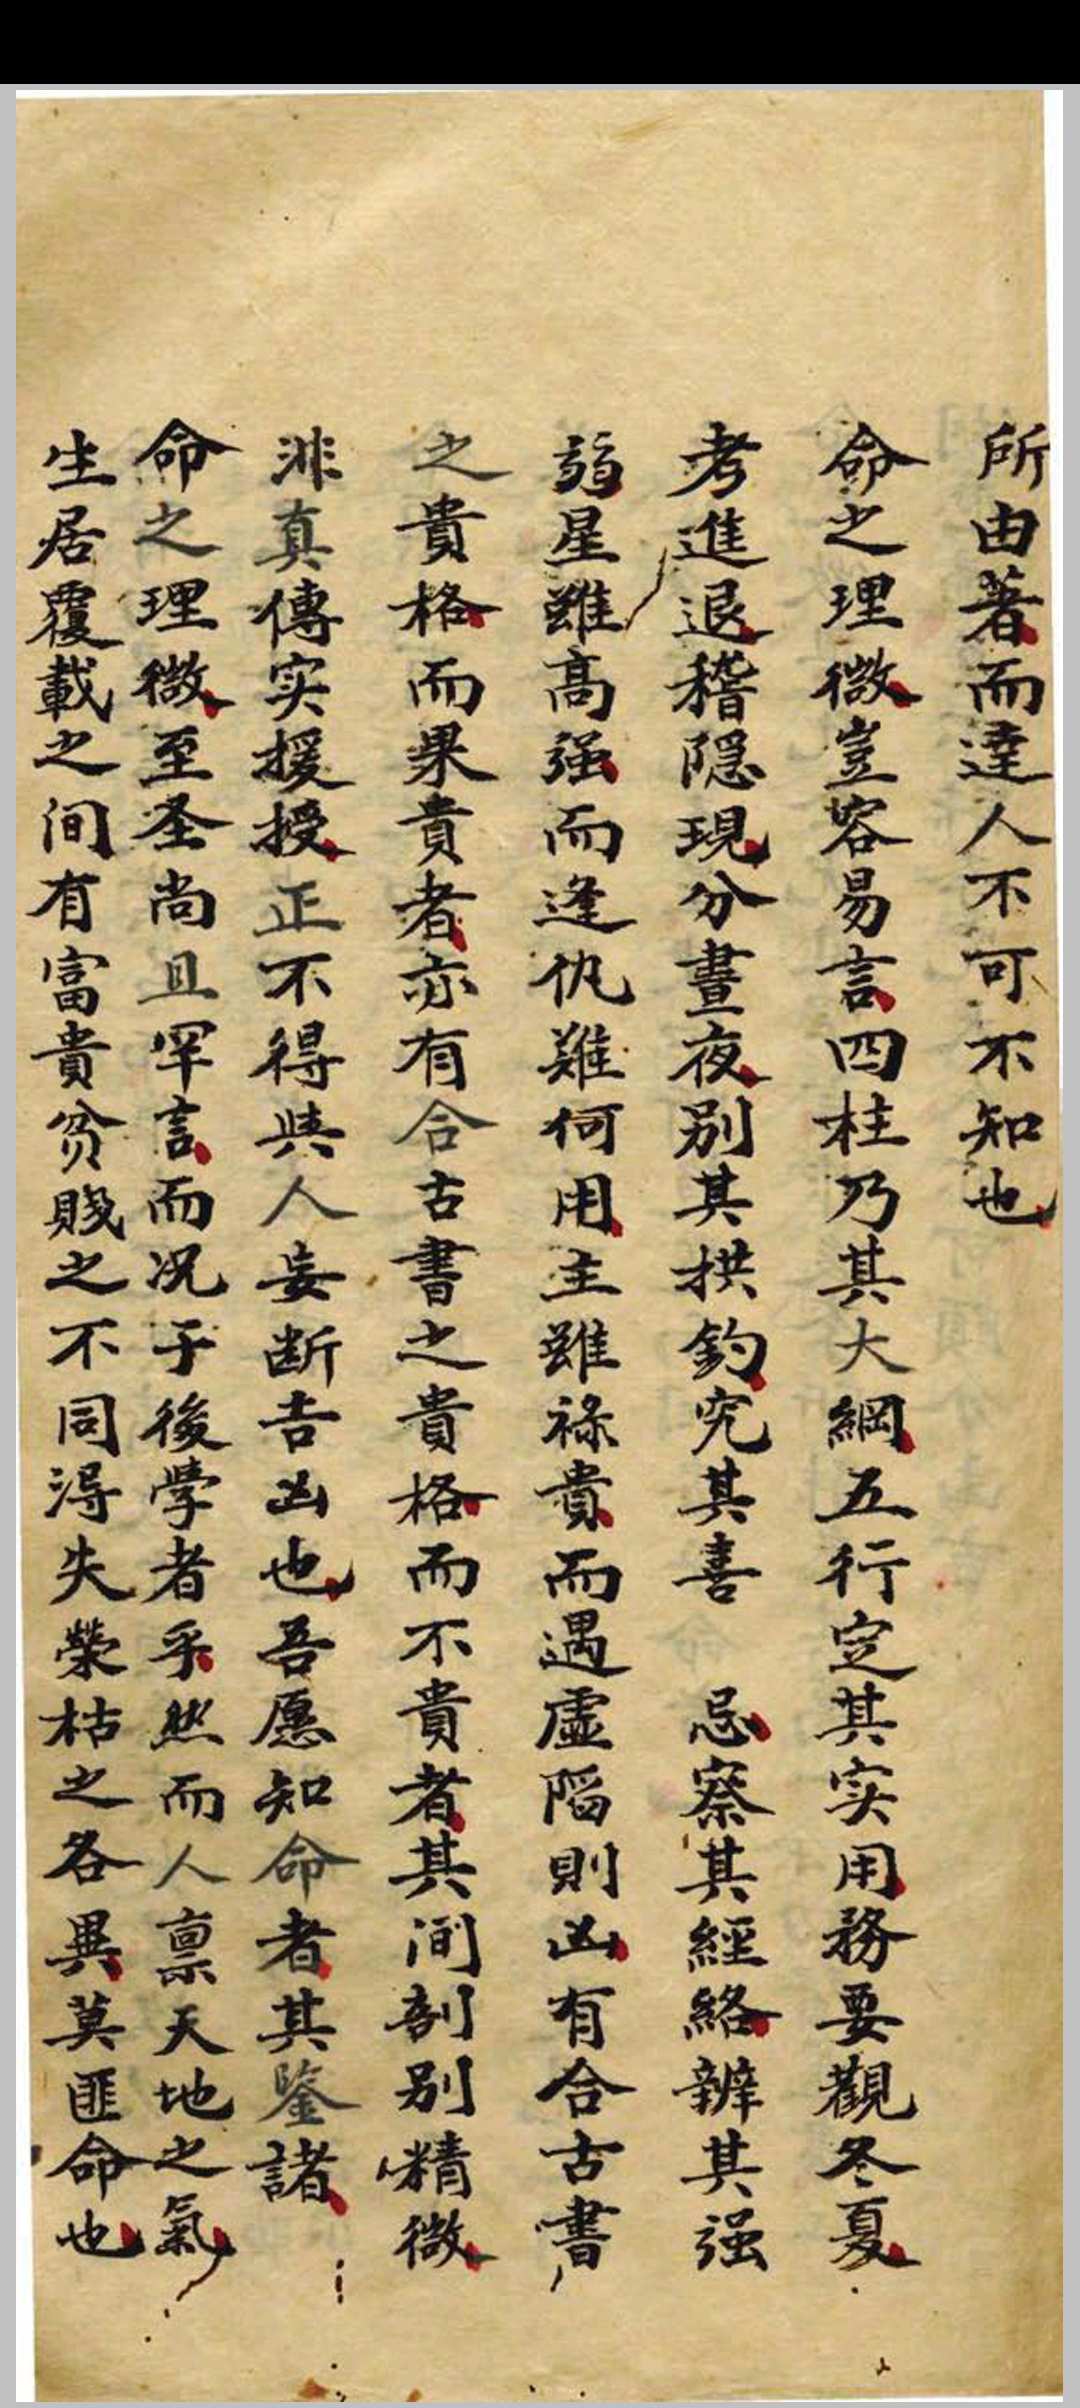 所由著而達人不可不知也
命之理微豈容易言四柱乃其大綱五行定其实用務要觀冬夏
考進退稽隐現分晝夜别其拱鈞究其喜忌察其經絡辨其强
弱星雖高强而逢仇難何用主雖祿貴而遇虛陷則凶有合古書
之貴格而果貴者亦有合古書之貴格而不貴者其间剖别精微
非真傳实援授正不得與人妄断吉凶也吾愿知命者其鑒諸
命之理微至圣尚且罕言而况于後學者乎然而人禀天地之氣
生居覆載之间有富貴贫賤之不同得失榮枯之各異莫匪命也